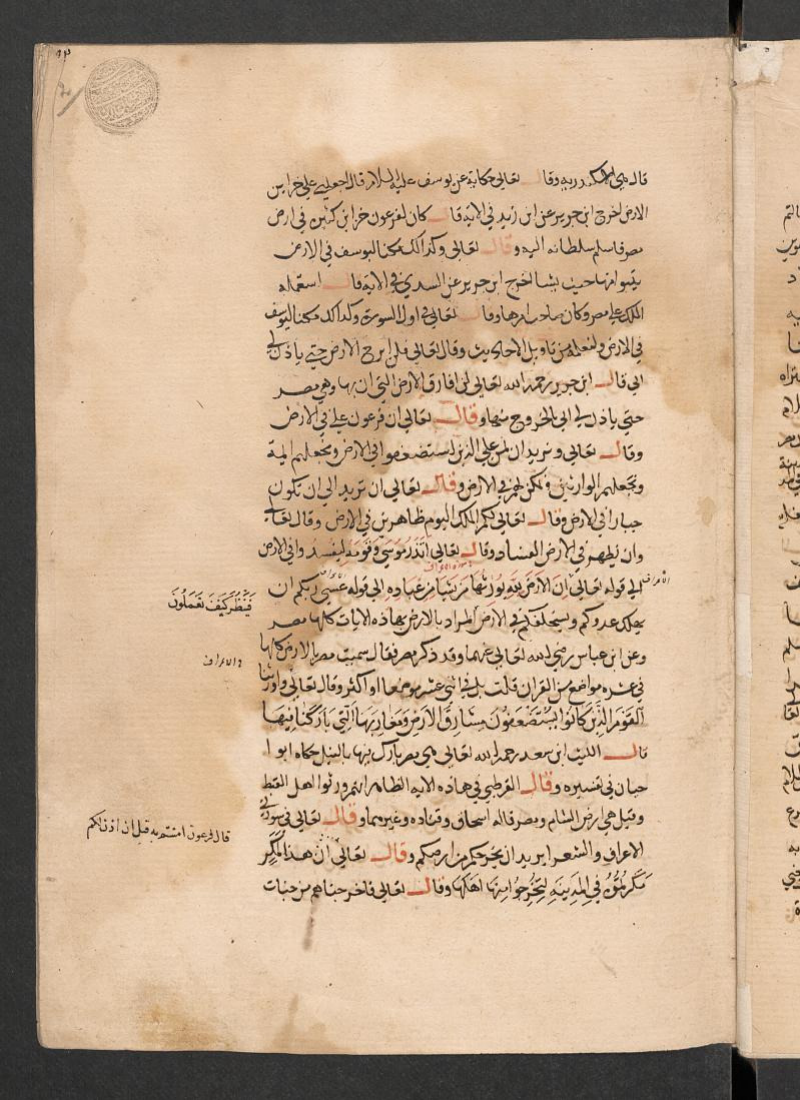 قال هي الاسكندرية وقال تعالى حكاية عن يوسف عليه السلام قال اجعلني على خزاين
الارض اخرج ابن جرير عن ابن زيد في الاية قال كان لفرعون خزاين كثيرة في ارض
مصر فاسلم سلطانه اليه وقال تعالى وكذلك مكنا ليوسف في الارض
يتبوا منها حيث يشا اخرج ابن جرير عن السدي في الاية قال استعمله
الملك على مصر وكان صاحب امرها وقال تعالى في اول السورة وكذلك مكنا ليوسف
في الارض ولنعلمه من تاويل الاحاديث وقال تعالى فلن ابرح الارض حتى ياذن لي
ابي قال ابن جرير رحمه الله تعالى لن افارق الارض التي انا بها وهي مصر
حتى ياذن لي ابي بالخروج منها وقال تعالى ان فرعون علا في الارض
وقال تعالى ونريد ان نمن على الذين استضعفوا في الارض ونجعلهم ايمة
ونجعلهم الوارثين ونمكن لهم في الارض وقال تعالى ان تريد الا ان تكون
جبارا في الارض وقال تعالى لكم الملك اليوم ظاهرين في الارض وقال تعالى
وان يظهر في الارض الفساد وقال تعالى اتذر موسى وقومه ليفسدوا في الارض
الى قوله تعالى ان الارض لله يورثها من يشا من عباده الى قوله عسى ربكم ان
يهلك عدوكم ويستخلفكم في الارض المراد بالارض بهاذه الايات كلها مصر
فينظر كيف تعملون
وعن ابن عباس رضي الله تعالى عنهما وقد ذكر مصر فقال سميت مصر بالارض كلها
في عشرة مواضع من القران قلت بل في اثني عشر موضعا او اكثر وقال تعالى واورثنا
القوم الذين كانوا يستضعفون مشارق الارض ومغاربها التي باركنا فيها
قال الليث ابن سعد رحمه الله تعالى هي مصر بارك فيها بالنيل حكاه ابوا
حيان في تفسيره وقال القرطبي في هاذه الاية الظاهر انهم ورثوا اهل القبط
وقيل هي ارض الشام ومصر قاله اسحاق وقتاده وغيرهما وقال تعالى في سورتي
الاعراف والشعرا يريد ان يخرجكم من ارضكم وقال تعالى ان هذا لمكر
قال فرعون امنتم به قبل ان اذن لكم
مكرتموه في المدينة لتخرجوا منها اهلها وقال تعالى فاخرجناهم من جنات